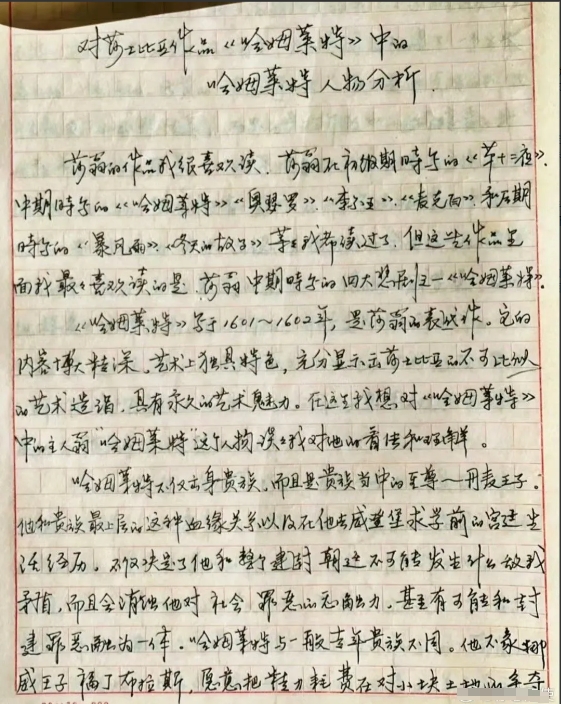 对莎士比亚作品《哈姆莱特》中的
哈姆莱特人物分析.
莎翁的作品我很喜欢读. 莎翁在初级期时写的《第十二夜》.
中期时写的《哈姆莱特》《奥瑟罗》.《李尔王》.《麦克白》和后期
时写的《暴风雨》.《冬天的故事》等等我都读过了. 但这些作品里
面我最喜欢读的是. 莎翁中期时写的四大悲剧之一《哈姆莱特》.
《哈姆莱特》写于1601~1602年, 是莎翁的表成作. 它的
内容博大精深, 艺术上独具特色, 充分显示出莎士比亚的不可比似
的艺术造诣, 具有永久的艺术魅力. 在这里我想对《哈姆莱特》
中的主人翁"哈姆莱特"这个人物谈谈我对他的看法和理解。
哈姆莱特不仅出身贵族, 而且是贵族当中的至尊—丹麦王子.
他和贵族最上层的这种血缘关系以及在他去威登堡求学前的宫廷生
活经历. 不仅决定了他和整个建封朝廷不可能发生什么敌我
矛盾, 而且会消蚀他对社会罪恶的 力, 甚至有可能和封
建罪恶融为一体. 哈姆莱特与一般青年贵族不同。他不象挪
威王子福丁布拉斯, 愿意把精力耗费在对小块土地的争夺